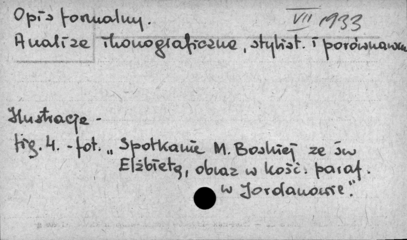 Opis formalny. VII 1933
Analize ikonograficzne, stylist. i porównawcze
Ilustracje -
fig. 4. - fot. „Spotkanie M. Boskiej ze św
Elżbietą, obraz w kość. paraf.
w Jordanowie."